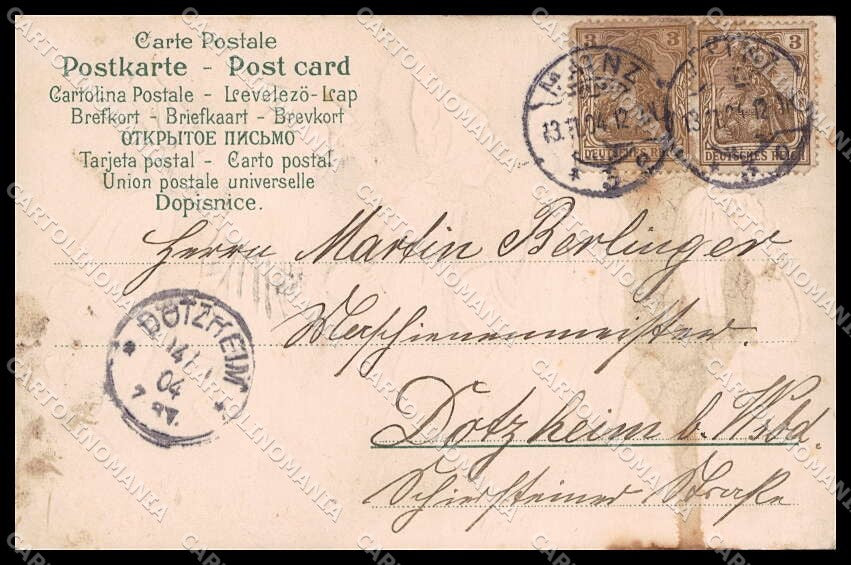 Carte Postale
Postkarte - Post card
Cartolina Postale - Levelezö-Lap
Brefkort - Briefkaart - Brevkort
ОТКРЫТОЕ ПИСЬМО
Tarjeta postal - Carto postal
Union postale universelle
Dopisnice.
3 3 3
MAINZ
13.11.04.12
* 3
13.11.04.12
DEUTSCHES REICH
Herrn Martin Berlinger
Maschienenmeister.
Dotzheim b. Wsbd.
Schiersteiner Straße
DOTZHEIM
14
04
7
CARTOLINOMANIA